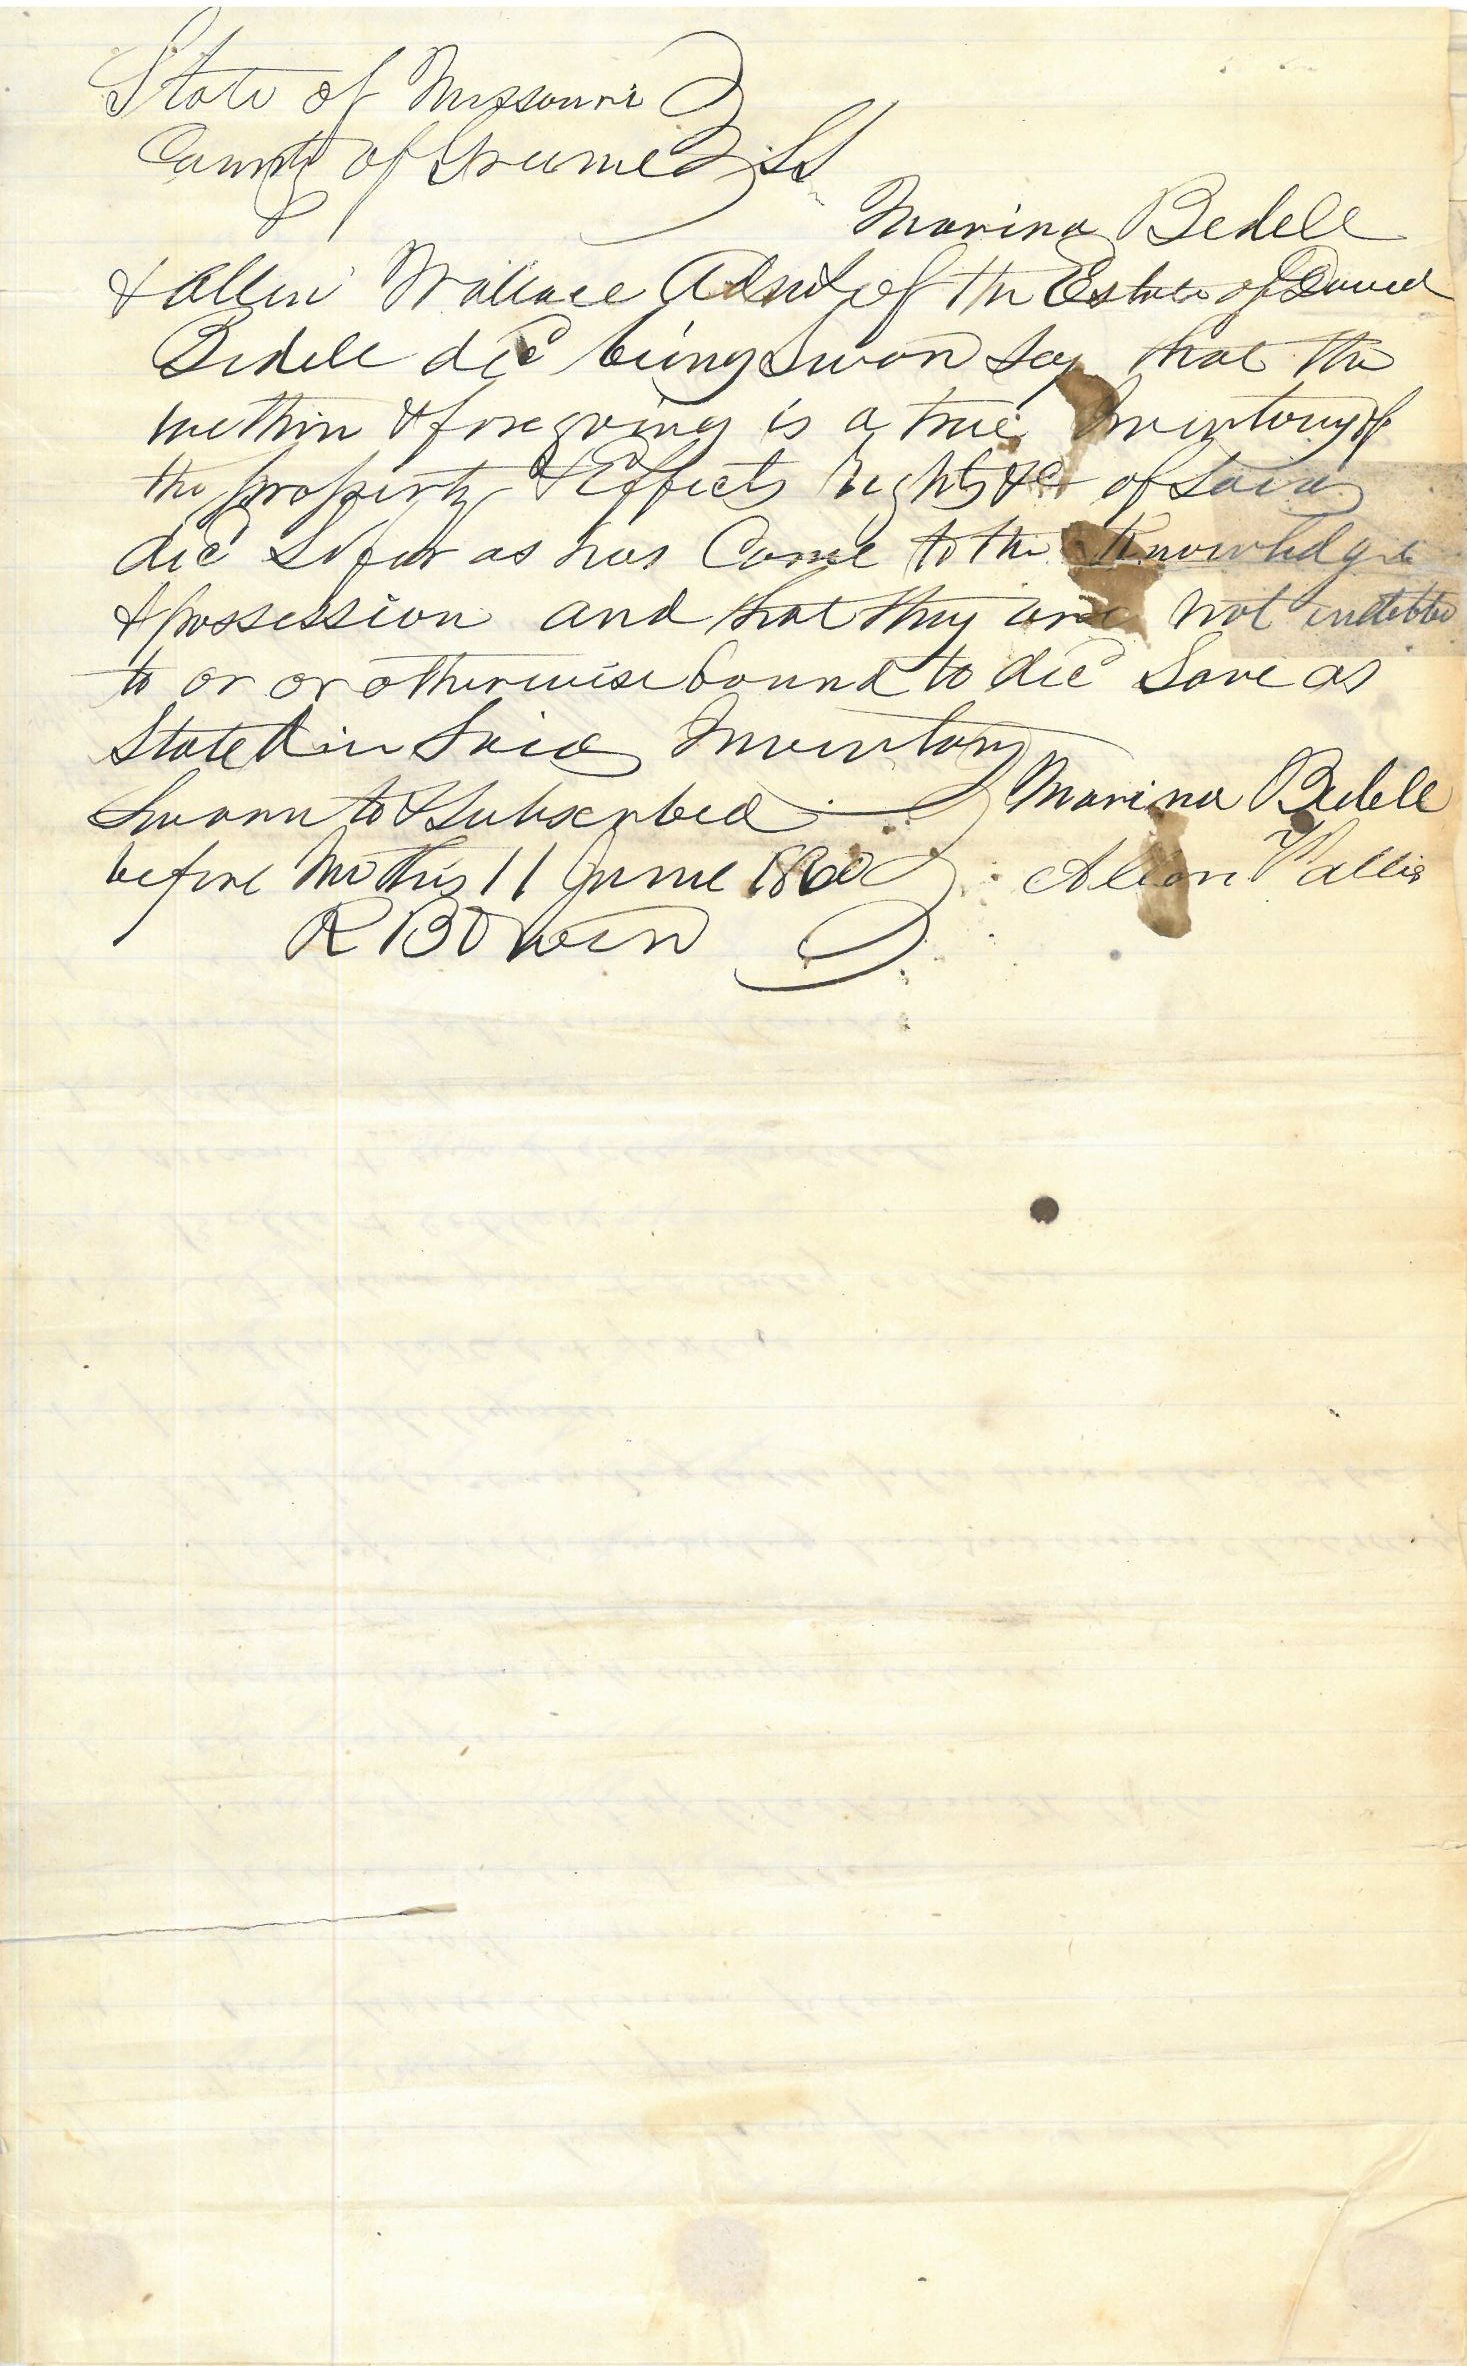 State of Missouri
County of Greene SS
Marina Bedell
& Allen Wallace Admt of the Estate of David
Bedell dec being Sworn Say that the
within & foregoing is a true Inventory of
the property & Effects rights &c of Said
dec So far as has Come to the Knowledge
& possession and that they are not indebted
to or or otherwise bound to dec Save as
Stated in Said Inventory
Sworn to & Subscribed Marina Bedell
before Me this 11 June 1860 Allen Wallis
R B Owen